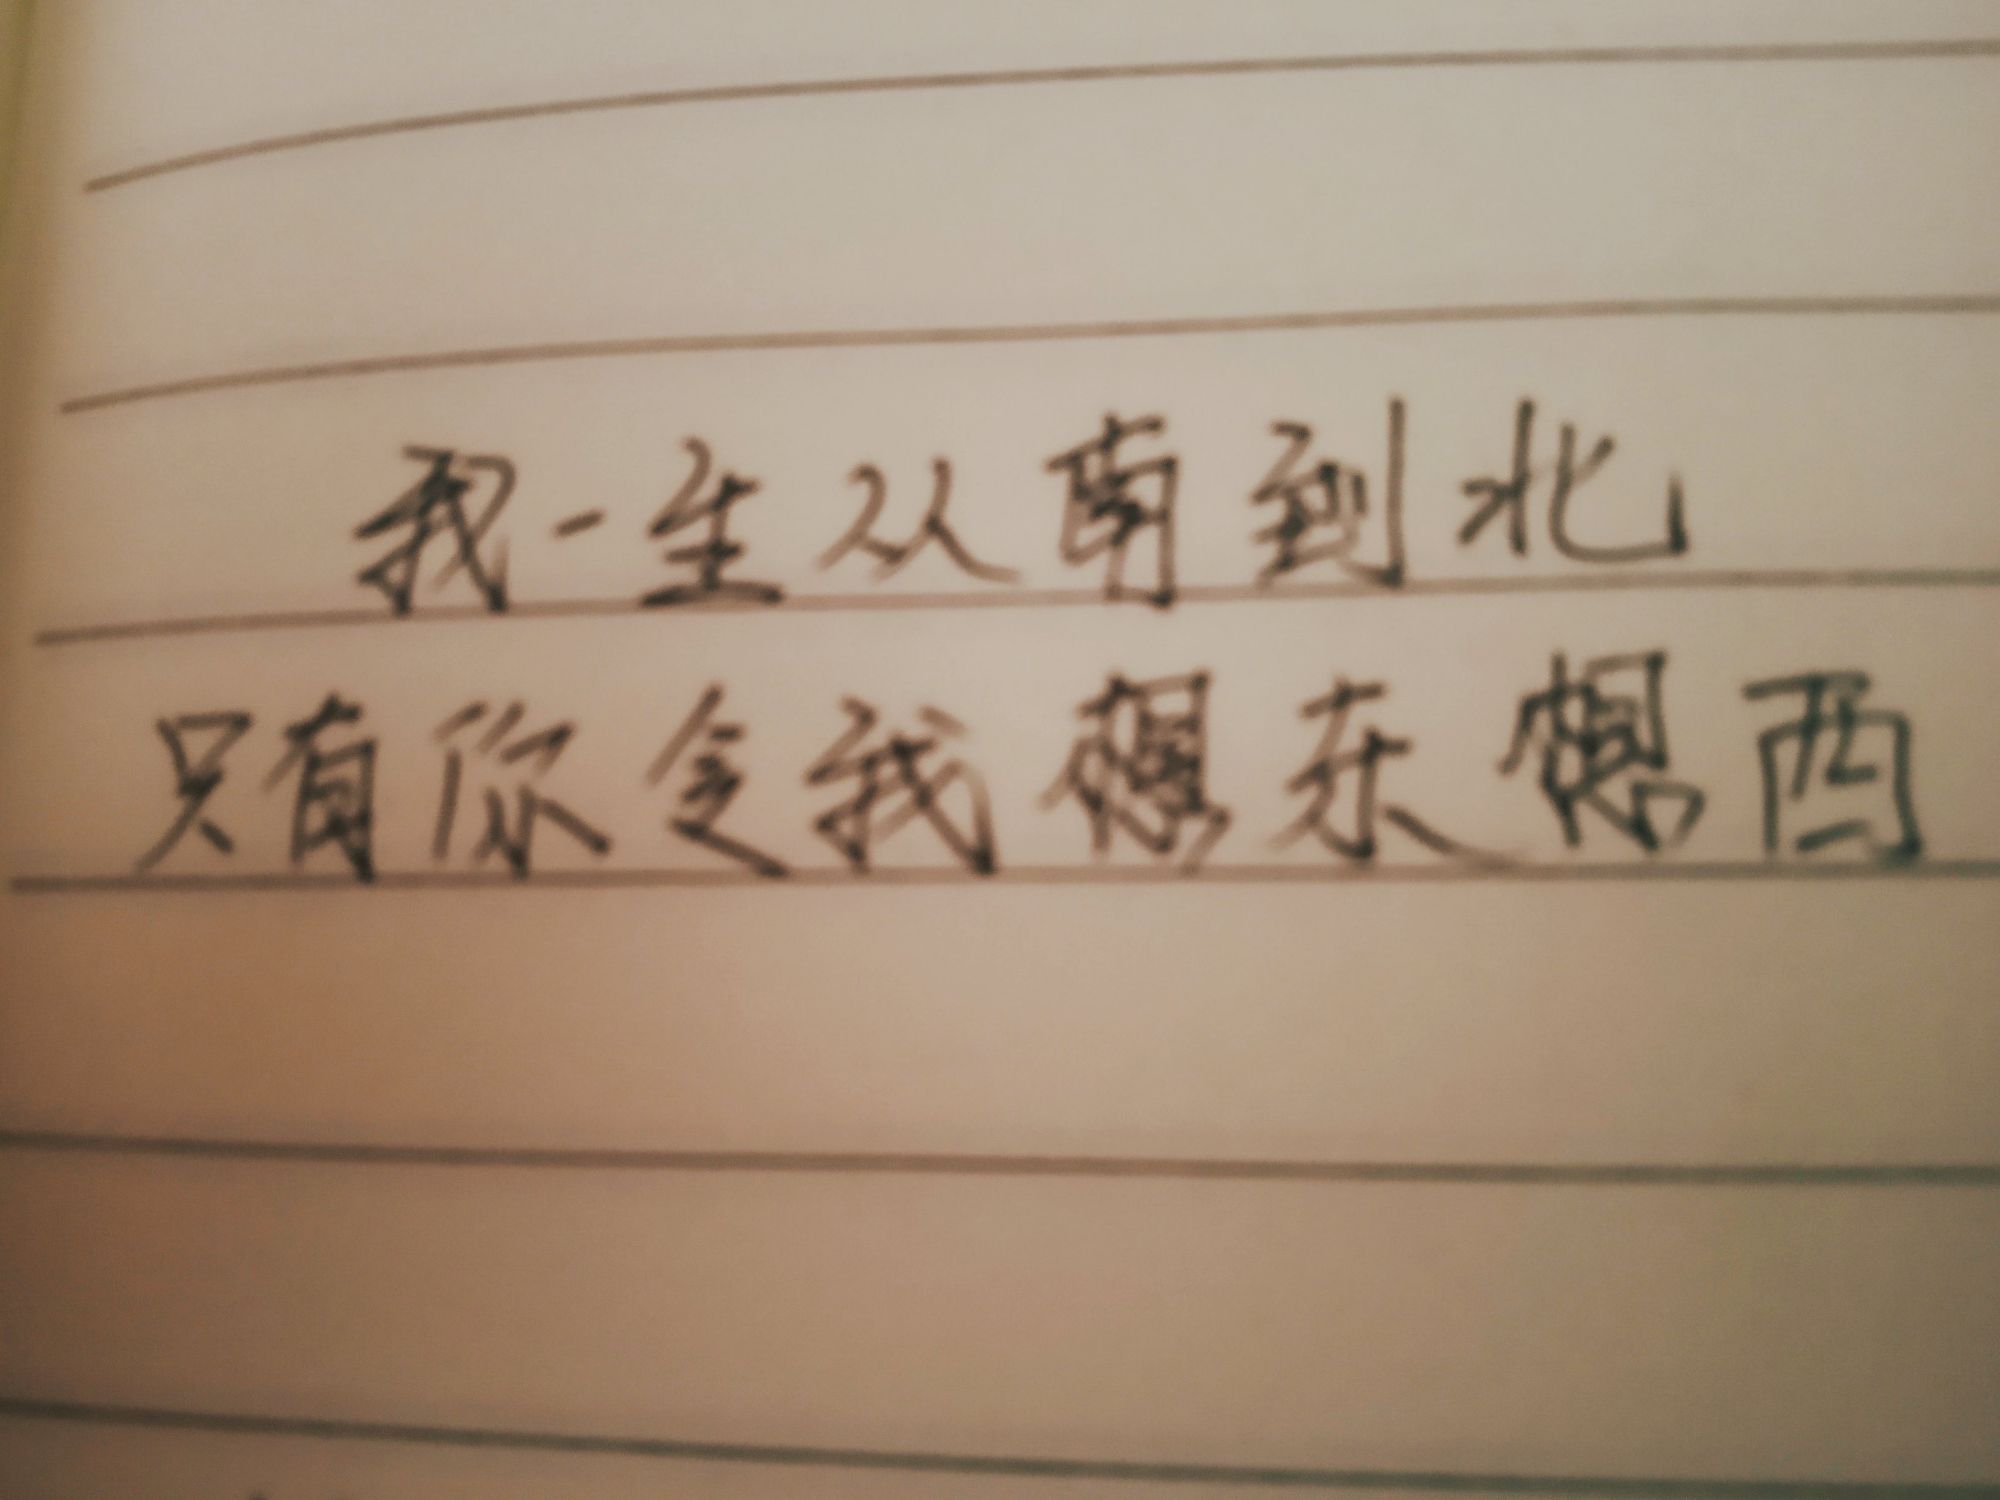 我一生从南到北
只有你令我想东想西